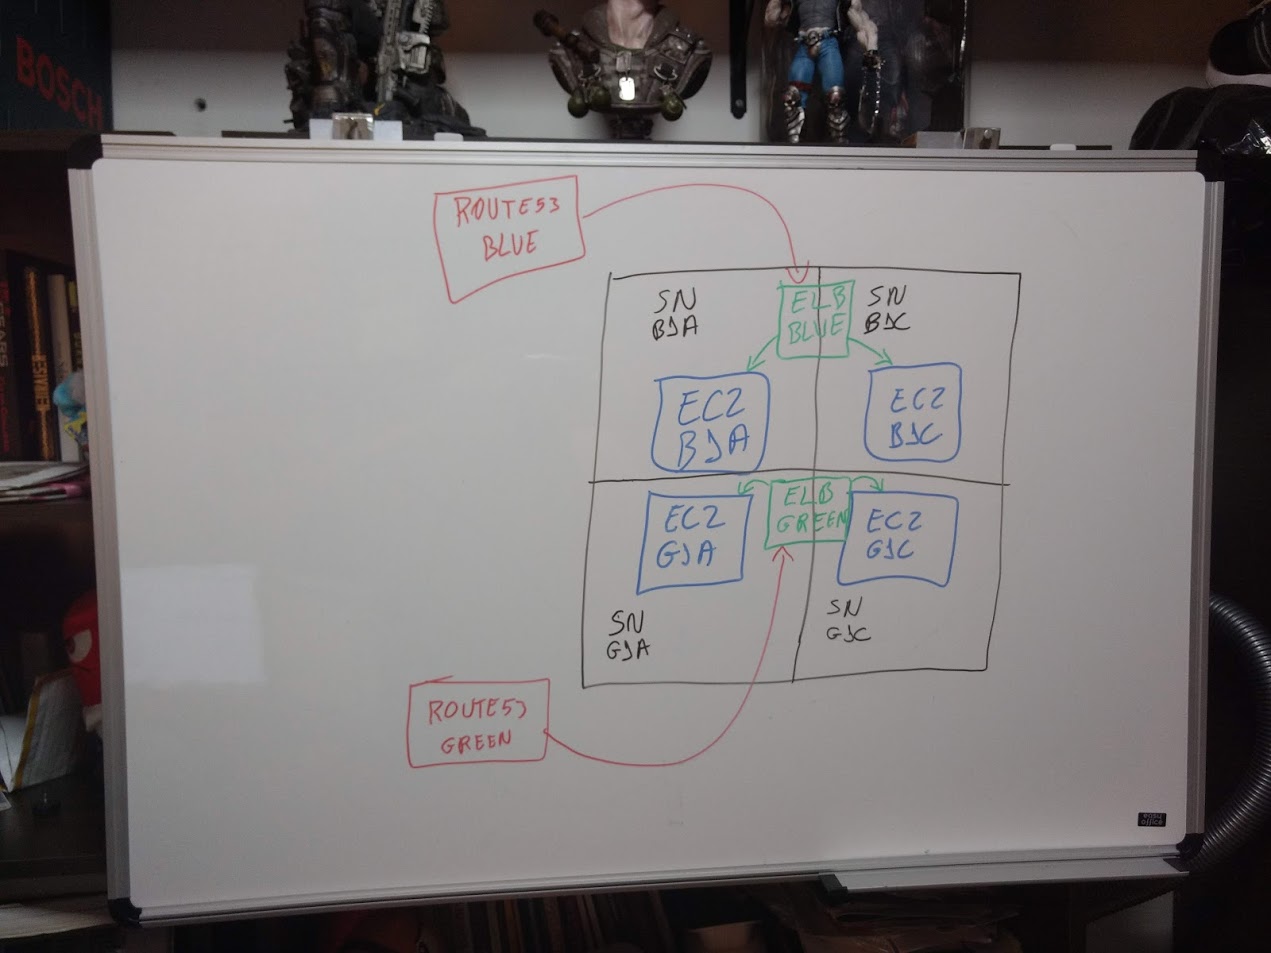 BOSCH
ROUTE53
BLUE
SN
B1A
ELB
BLUE
SN
B1C
EC2
B1A
EC2
B1C
ELB
GREEN
EC2
G1A
EC2
G1C
SN
G1A
SN
G1C
ROUTE53
GREEN